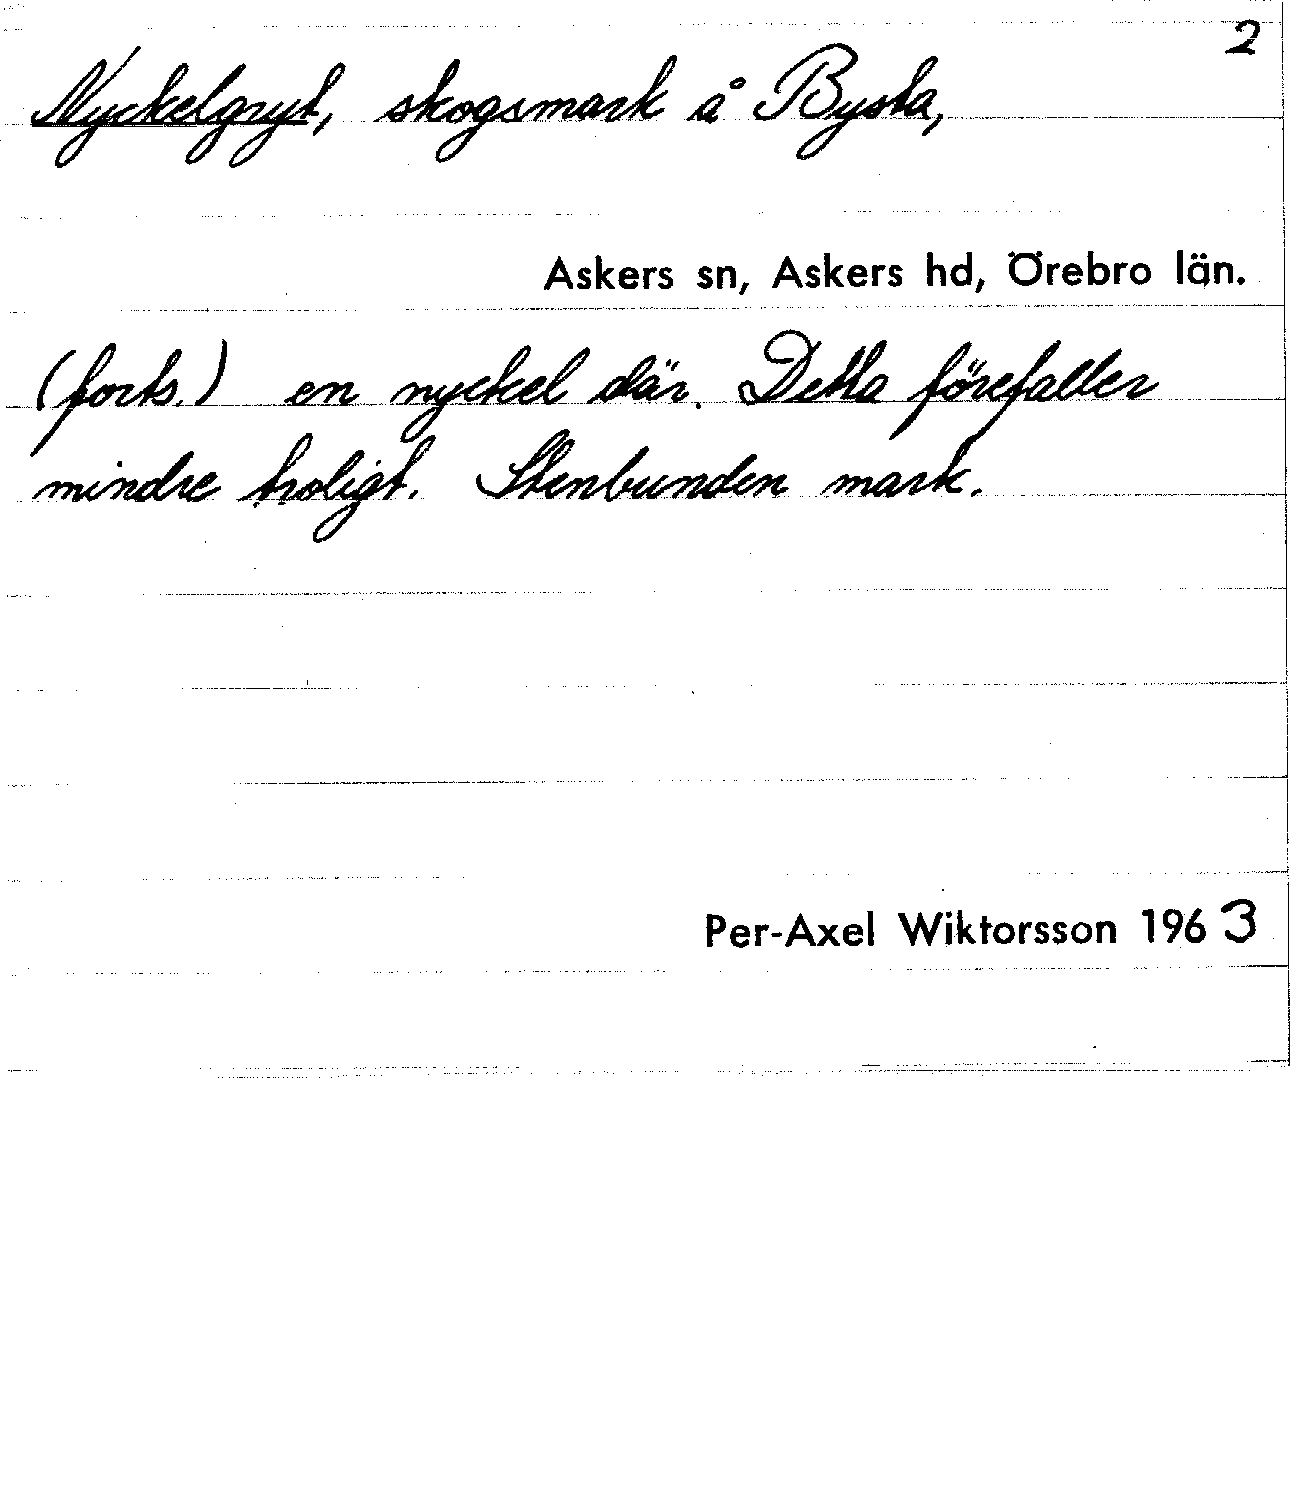 2
Nyckelgryt, skogsmark å Bysta,
Askers sn, Askers hd, Örebro län.
(forts.) en nyckel där. Detta förefaller
mindre troligt. Stenbunden mark.
Per-Axel Wiktorsson 1963